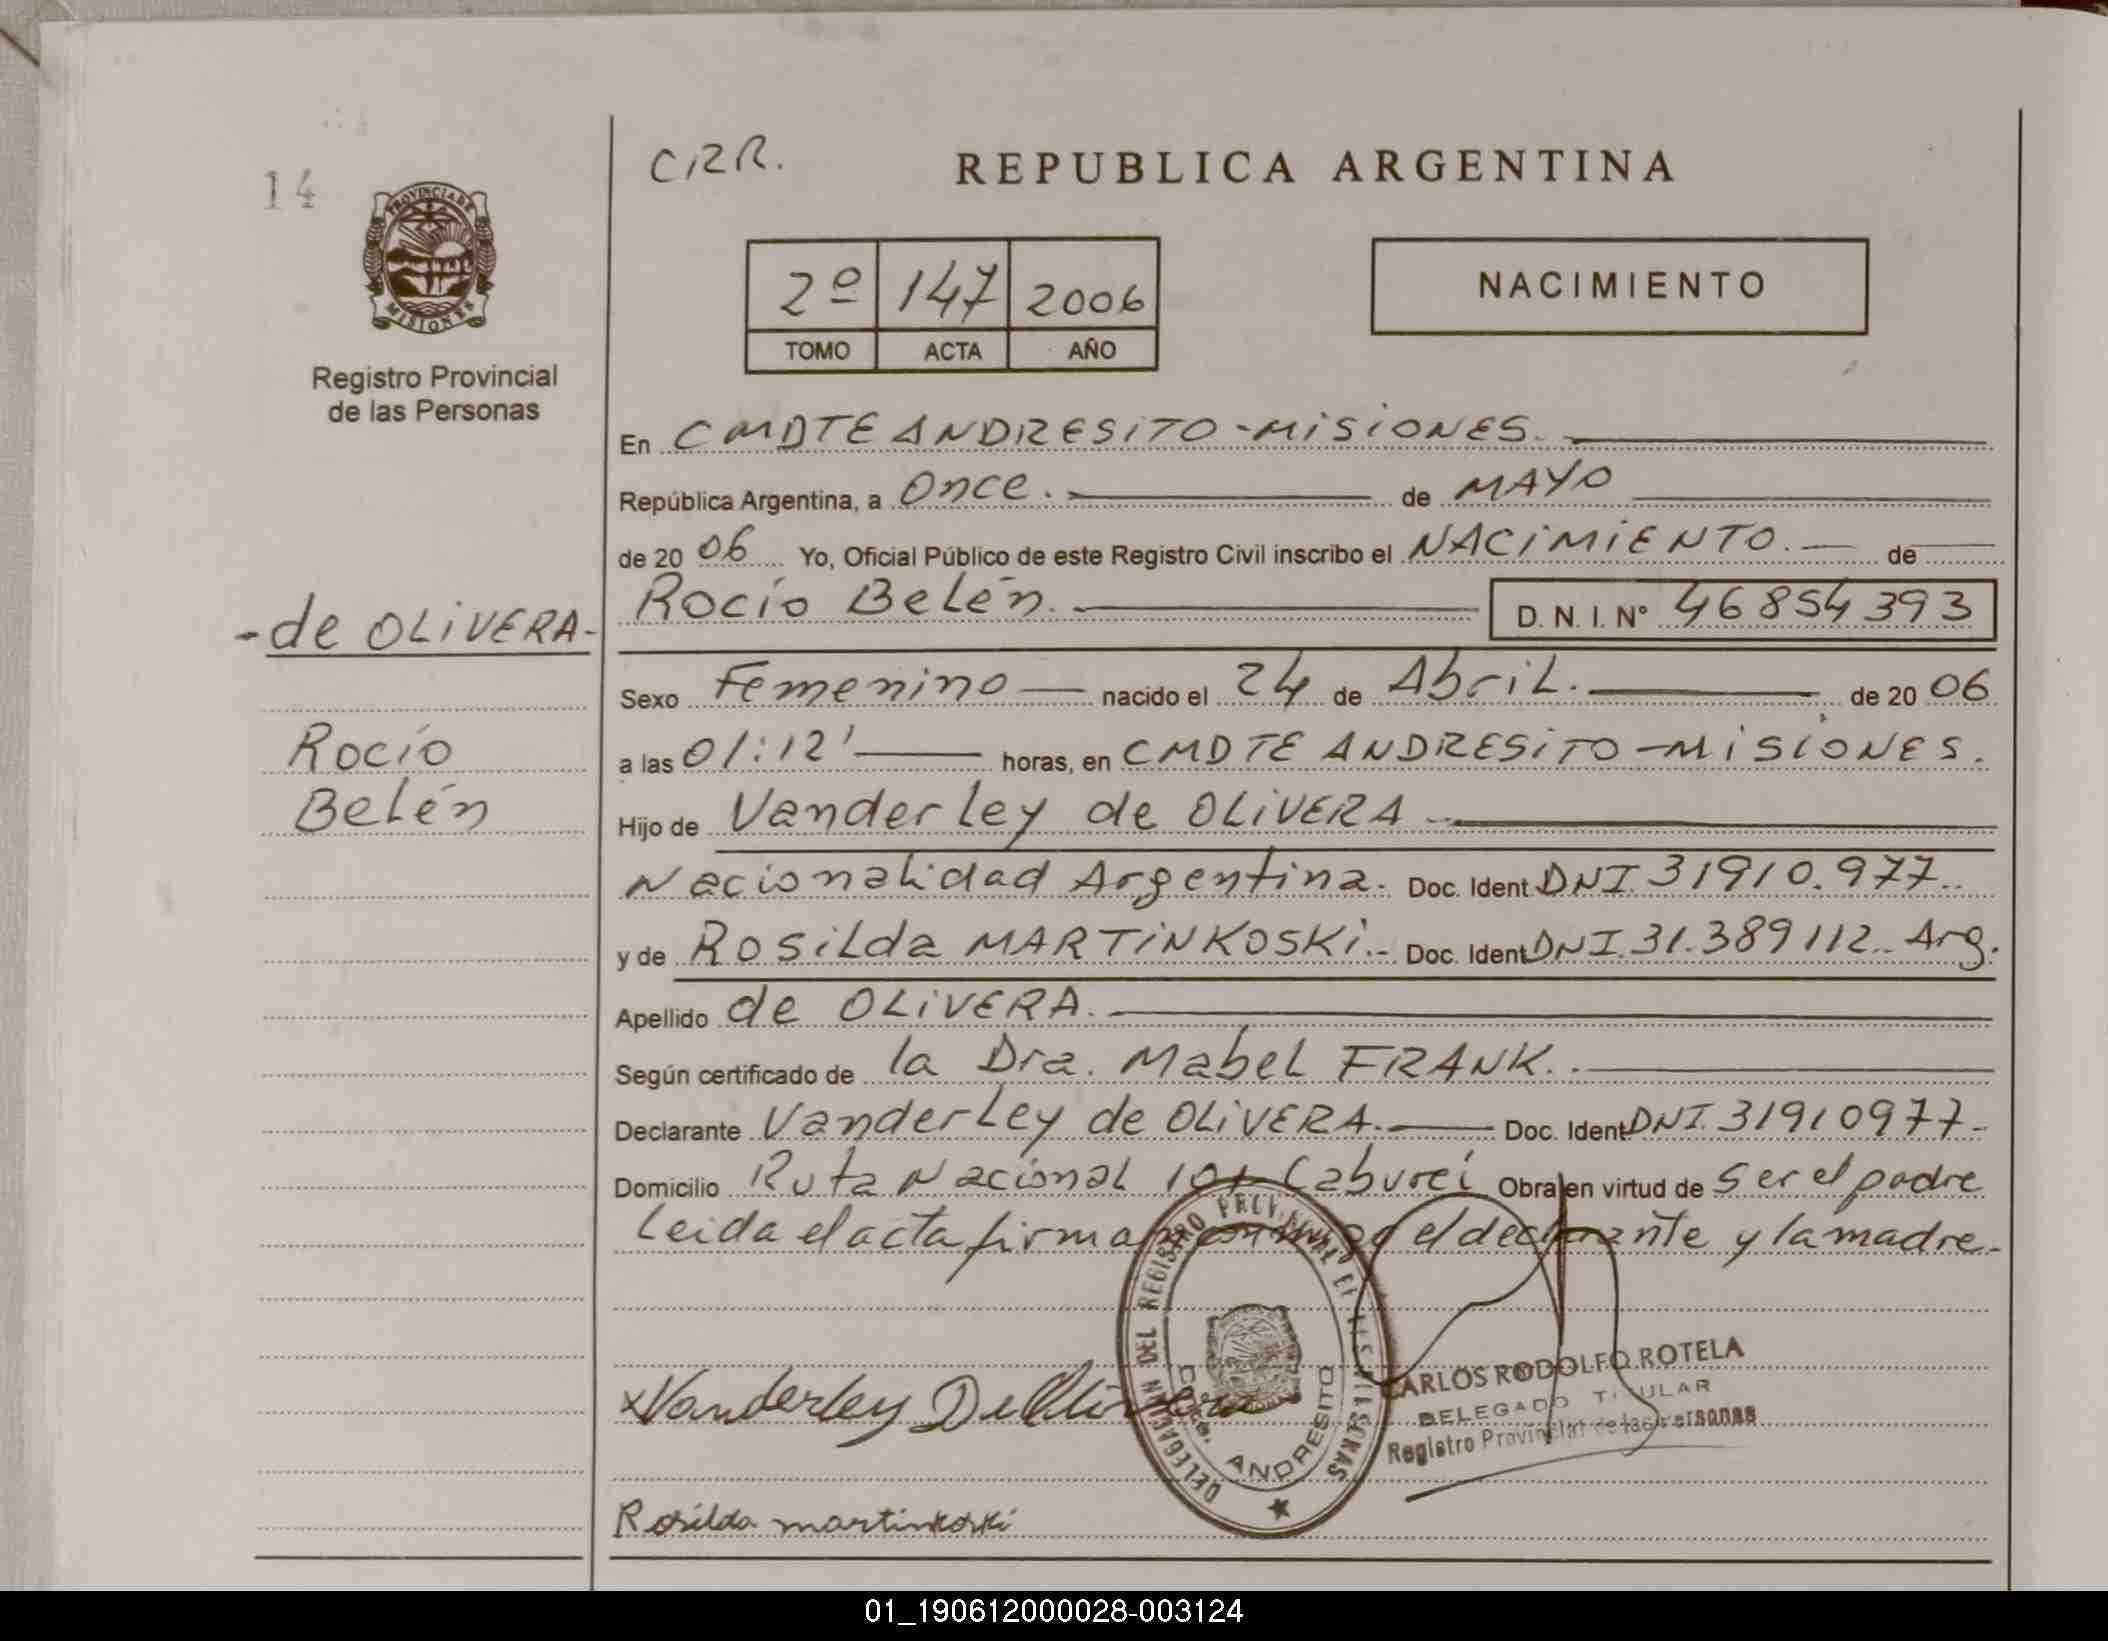 14
PROVINCIA DE
MISIONES
Registro Provincial
de las Personas
-de OLIVERA-
Rocío
Belén
CRR.
REPUBLICA ARGENTINA
2º 147 2006
TOMO ACTA AÑO
NACIMIENTO
En CMDTE ANDRESITO-MISIONES.
República Argentina, a Once. de MAYO
de 2006 Yo, Oficial Público de este Registro Civil inscribo el NACIMIENTO. de
Rocío Belén. D. N. I. Nº 46854393
Sexo Femenino nacido el 24 de Abril. de 2006
a las 01:12' horas, en CMDTE ANDRESITO-MISIONES.
Hijo de Vanderley de OLIVERA
Nacionalidad Argentina. Doc. Ident. DNI. 31910.977.
y de Rosilda MARTINKOSKI.- Doc. Ident. DNI. 31.389112. Arg.
Apellido de OLIVERA.
Según certificado de la Dra. Mabel FRANK.
Declarante Vanderley de OLIVERA. Doc. Ident. DNI. 31910977.
Domicilio Ruta Nacional 101 Cabureí Obra en virtud de Ser el padre
Leida el acta firman conmigo el declarante y la madre.
DELEGACION DEL REGISTRO PROVINCIAL DE LAS PERSONAS
CMDTE. ANDRESITO
CARLOS RODOLFO ROTELA
DELEGADO TITULAR
Registro Provincial de las Personas
x Vanderley De Olivera
Rosilda martinkoski
01_190612000028-003124